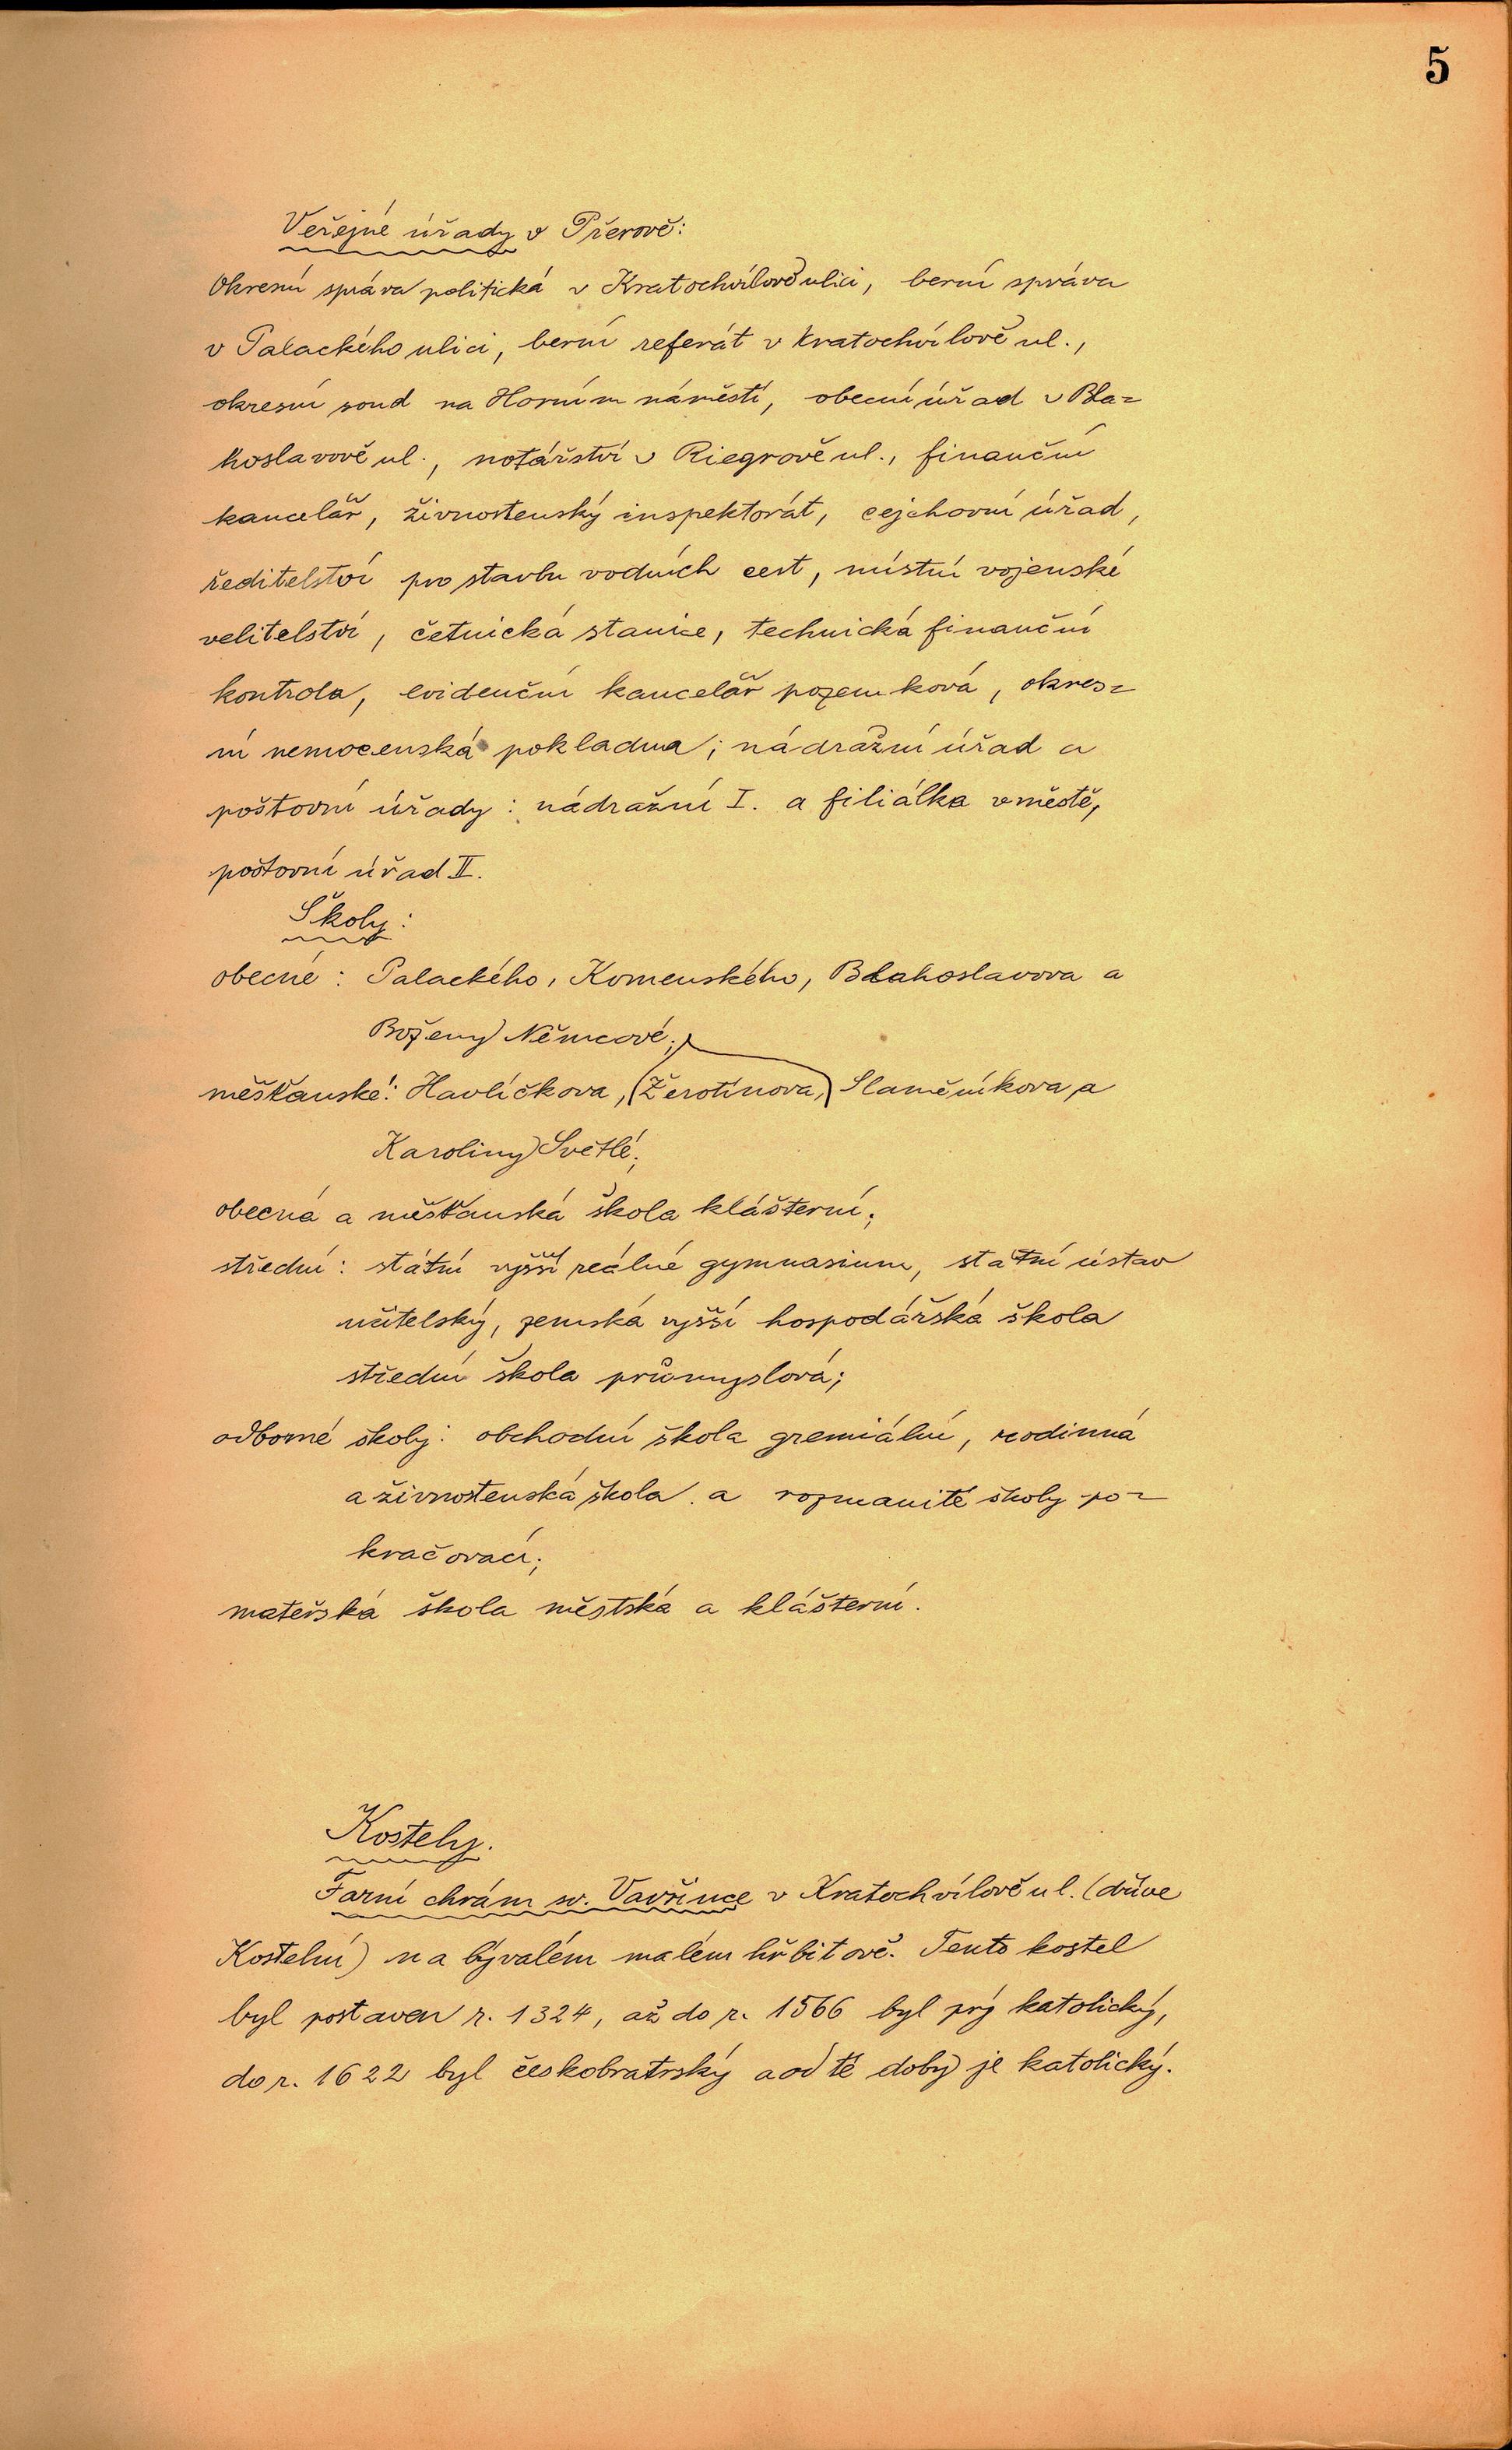 5
Veřejné úřady v Přerově:
Okresní správa politická v Kratochvílově ulici, berní správa
v Palackého ulici, berní referát v Kratochvílově ul.,
okresní soud na Horním náměstí, obecní úřad v Bla=
hoslavově ul., notářství v Riegrově ul., finanční
kancelář, živnostenský inspektorát, cejchovní úřad,
ředitelství pro stavbu vodních cest, místní vojenské
velitelství, četnická stanice, technická finanční
kontrola, evidenční kancelář pozemková, okres=
ní nemocenská pokladna; nádražní úřad a
poštovní úřady: nádražní I. a filiálka v městě,
poštovní úřad II.
Školy:
obecné: Palackého, Komenského, Blahoslavova a
Boženy Němcové;
měšťanské: Havlíčkova, (Žerotínova,) Slaměníkova a
Karoliny Světlé;
obecná a měšťanská škola klášterní;
střední: státní vyšší reálné gymnasium, státní ústav
učitelský, zemská vyšší hospodářská škola
střední škola průmyslová;
odborné školy: obchodní škola gremiální, rodinná
a živnostenská škola a rozmanité školy po=
kračovací;
mateřská škola městská a klášterní.
Kostely.
Farní chrám sv. Vavřince v Kratochvílově ul. (dříve
Kostelní) na bývalém malém hřbitově. Tento kostel
byl postaven r. 1324, až do r. 1566 byl prý katolický,
do r. 1622 byl českobratrský a od té doby je katolický.